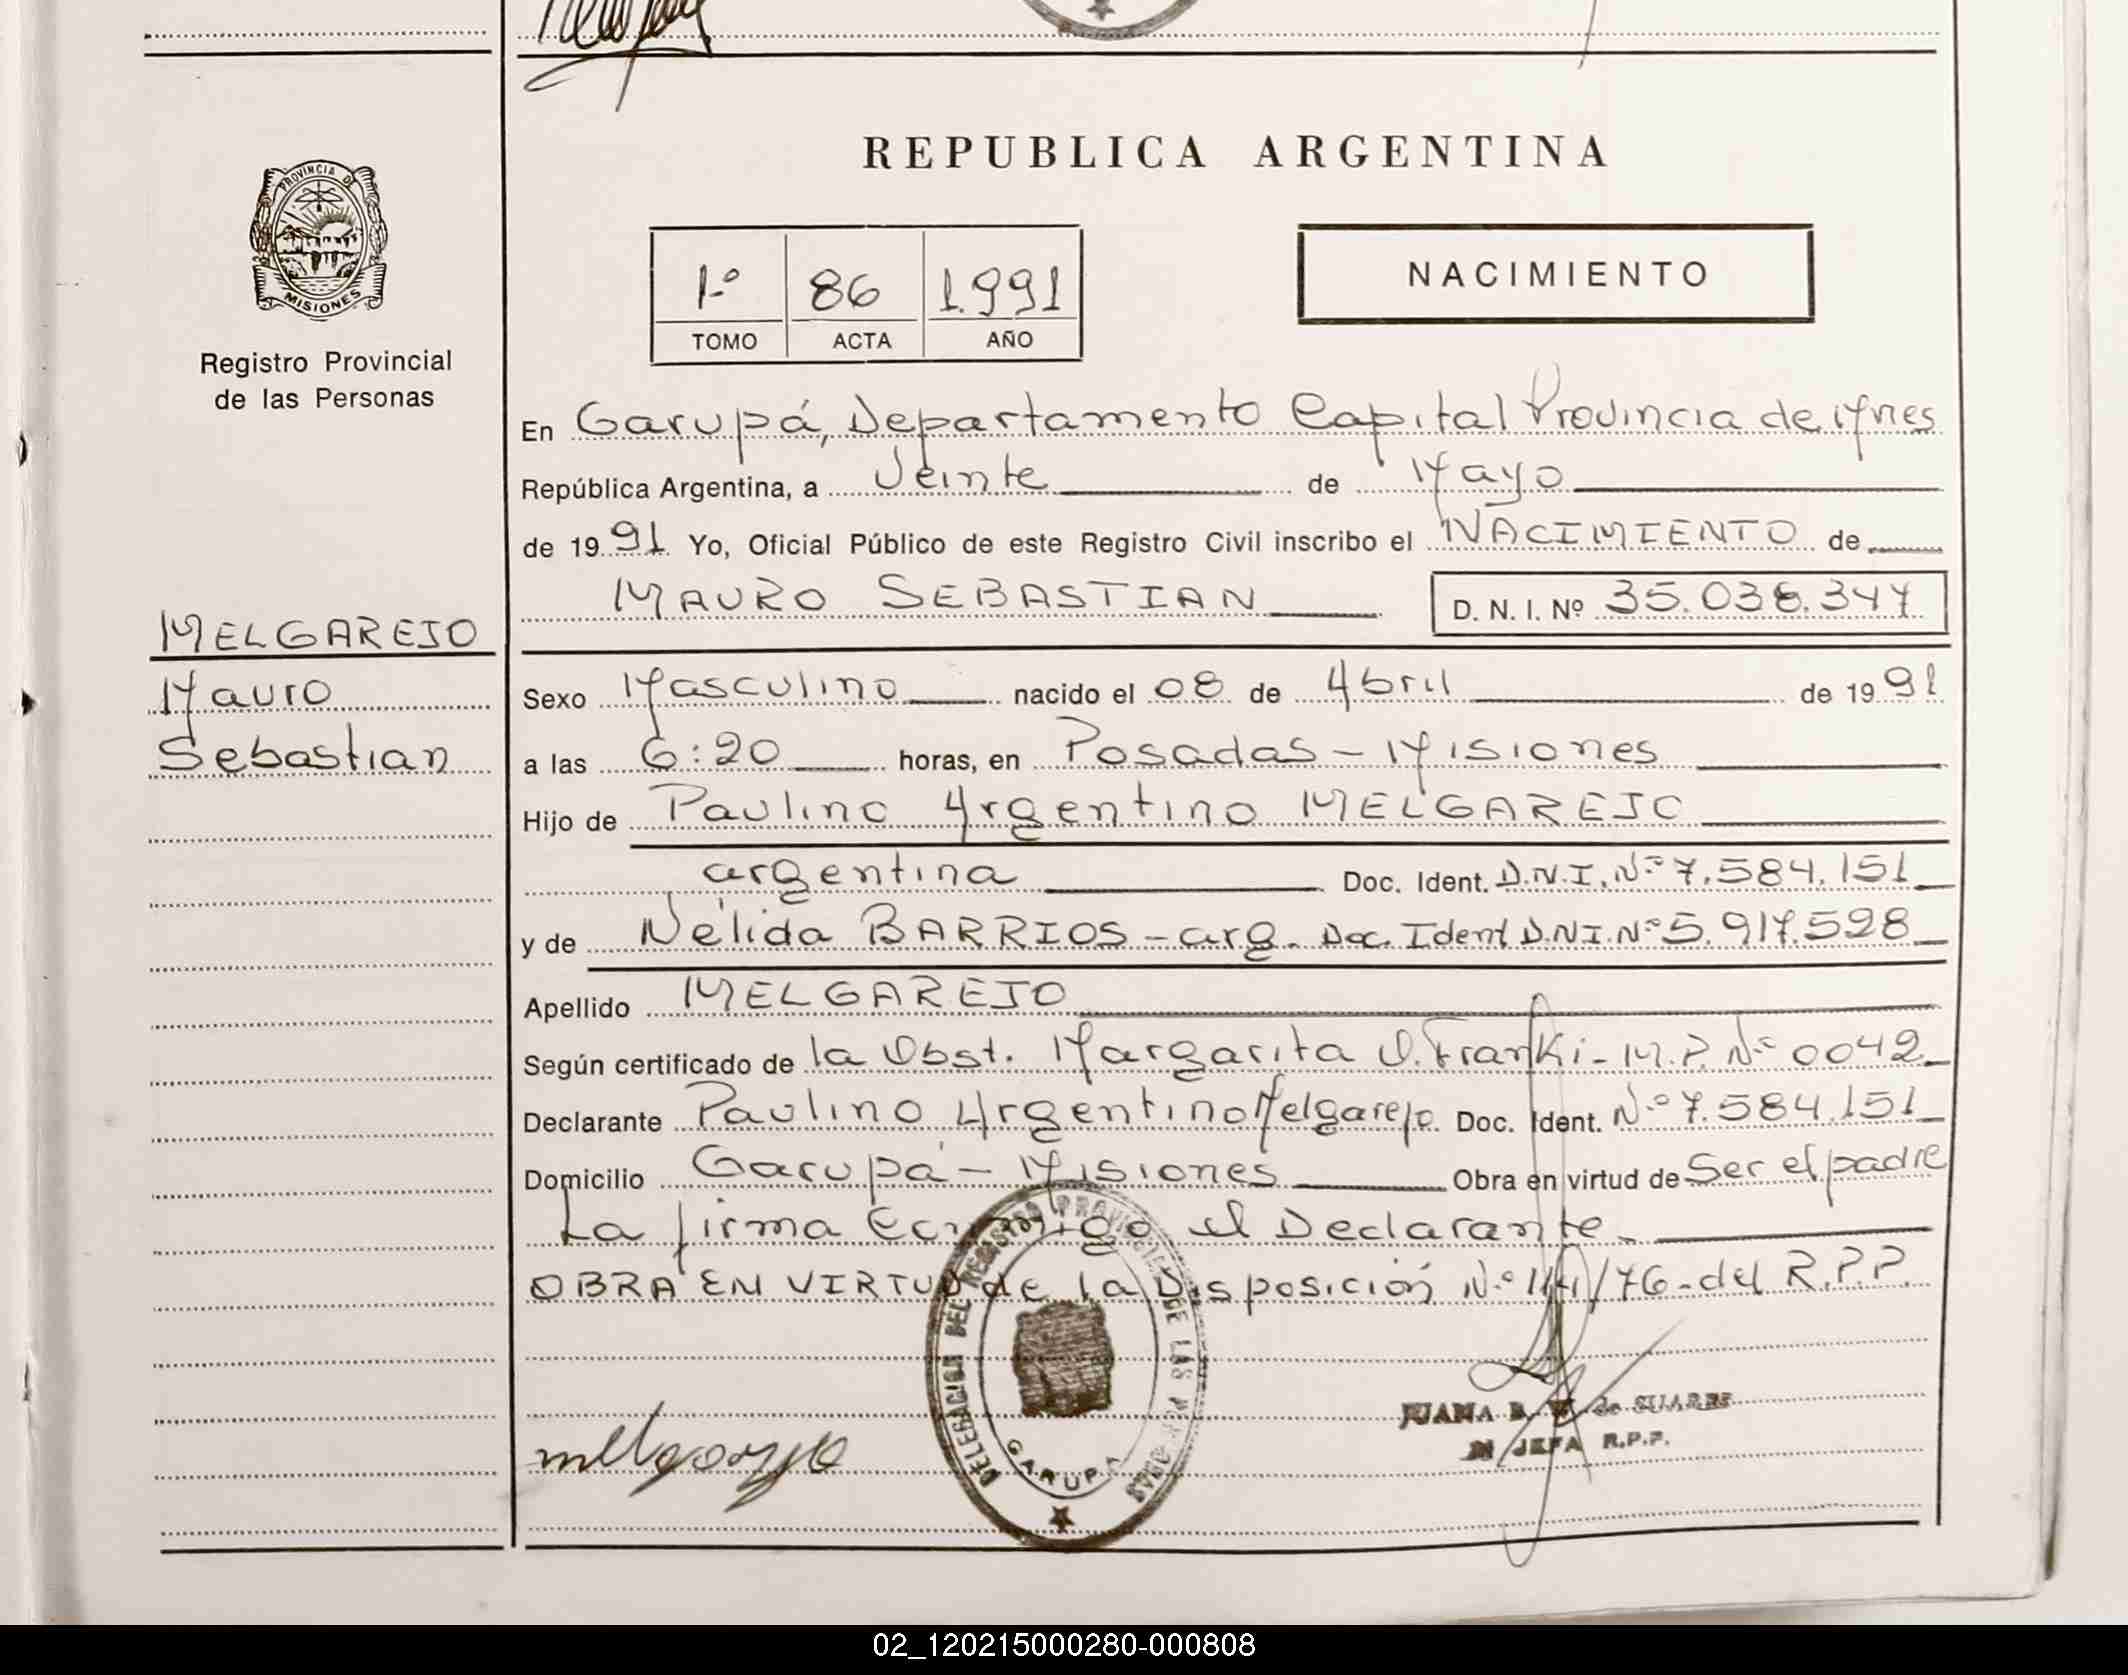 REPUBLICA ARGENTINA
PROVINCIA DE
MISIONES
Registro Provincial
de las Personas
1º 86 1.991
TOMO ACTA AÑO
NACIMIENTO
En Garupá, Departamento Capital Provincia de Mnes
República Argentina, a Veinte de Mayo
de 1991 Yo, Oficial Público de este Registro Civil inscribo el NACIMIENTO de
MAURO SEBASTIAN D. N. I. Nº 35.038.347
MELGAREJO
Mauro
Sebastian
Sexo Masculino nacido el 08 de Abril de 1991
a las 6:20 horas, en Posadas - Misiones
Hijo de Paulino Argentino MELGAREJO
argentina Doc. Ident. D.N.I. Nº 7.584.151
y de Nélida BARRIOS - arg. Doc. Ident D.N.I. Nº 5.917.528
Apellido MELGAREJO
Según certificado de la Obst. Margarita O. Franki - M.P. Nº 0042
Declarante Paulino Argentino Melgarejo Doc. Ident. Nº 7.584.151
Domicilio Garupá - Misiones Obra en virtud de Ser el padre
La firma Conmigo el Declarante.
OBRA EN VIRTUD de la Disposición Nº /76 - del R.P.P.
DELEGACION DEL REGISTRO PROVINCIAL DE LAS PERSONAS
GARUPA
melgarejo
JUANA de SUAREZ
JEFA R.P.P.
02_120215000280-000808